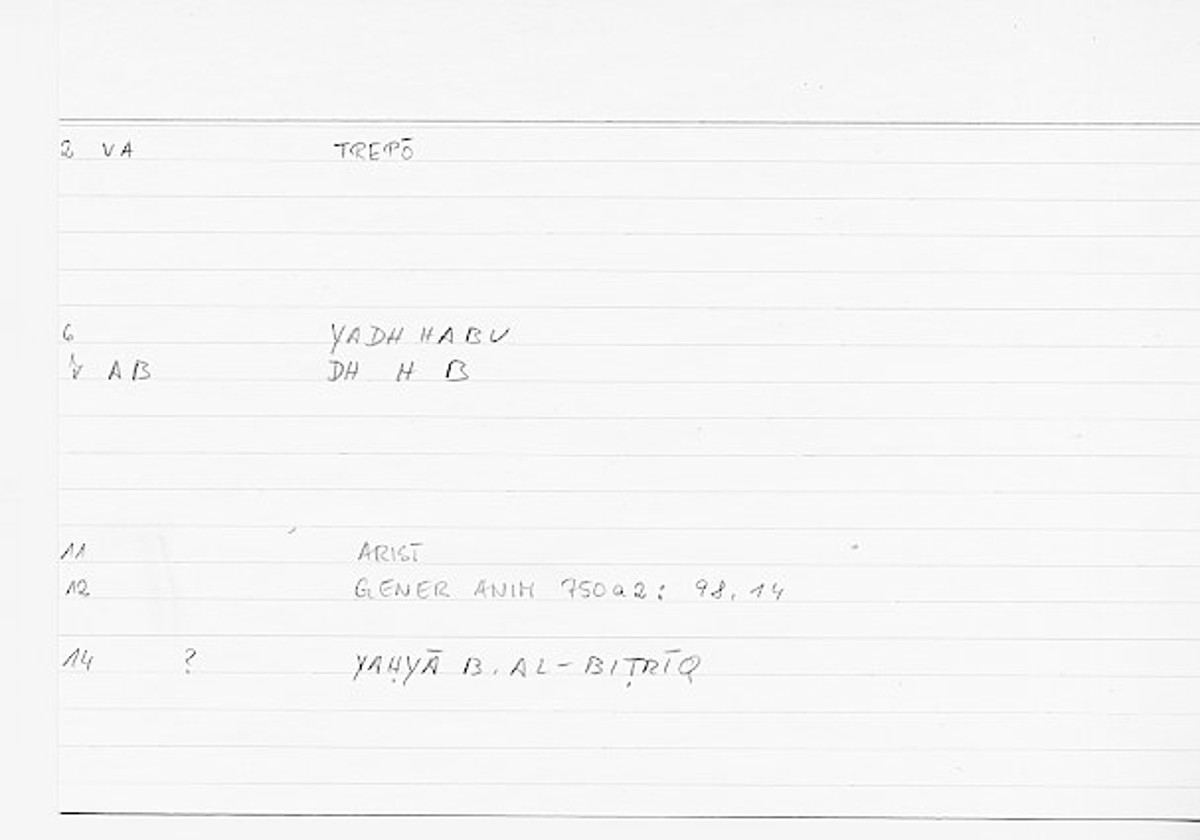 2 VA TREPŌ
6 YADHHABU
V AB DH H B
11 ARIST
12 GENER ANIM 750a2: 98.14
14 ? YAḤYĀ B. AL-BIṬRĪQ